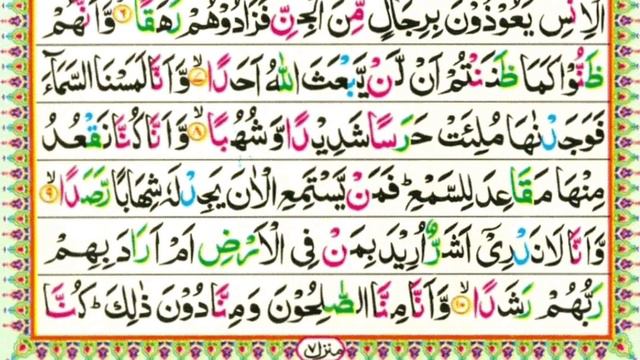 الْاِنْسِ يَعُوْذُوْنَ بِرِجَالٍ مِّنَ الْجِنِّ فَزَادُوْهُمْ رَهَقًا ۙ۶ وَّاَنَّهُمْ
ظَنُّوْا كَمَا ظَنَنْتُمْ اَنْ لَّنْ يَّبْعَثَ اللّٰهُ اَحَدًا ۙ۷ وَّاَنَّا لَمَسْنَا السَّمَآءَ
فَوَجَدْنٰهَا مُلِئَتْ حَرَسًا شَدِيْدًا وَّشُهُبًا ۙ۸ وَّاَنَّا كُنَّا نَقْعُدُ
مِنْهَا مَقَاعِدَ لِلسَّمْعِ ؕ فَمَنْ يَّسْتَمِعِ الْاٰنَ يَجِدْ لَهٗ شِهَابًا رَّصَدًا ۙ۹
وَّاَنَّا لَا نَدْرِيْٓ اَشَرٌّ اُرِيْدَ بِمَنْ فِي الْاَرْضِ اَمْ اَرَادَ بِهِمْ
رَبُّهُمْ رَشَدًا ۙ۱۰ وَّاَنَّا مِنَّا الصّٰلِحُوْنَ وَمِنَّا دُوْنَ ذٰلِكَ ؕ كُنَّا
منزل ۷